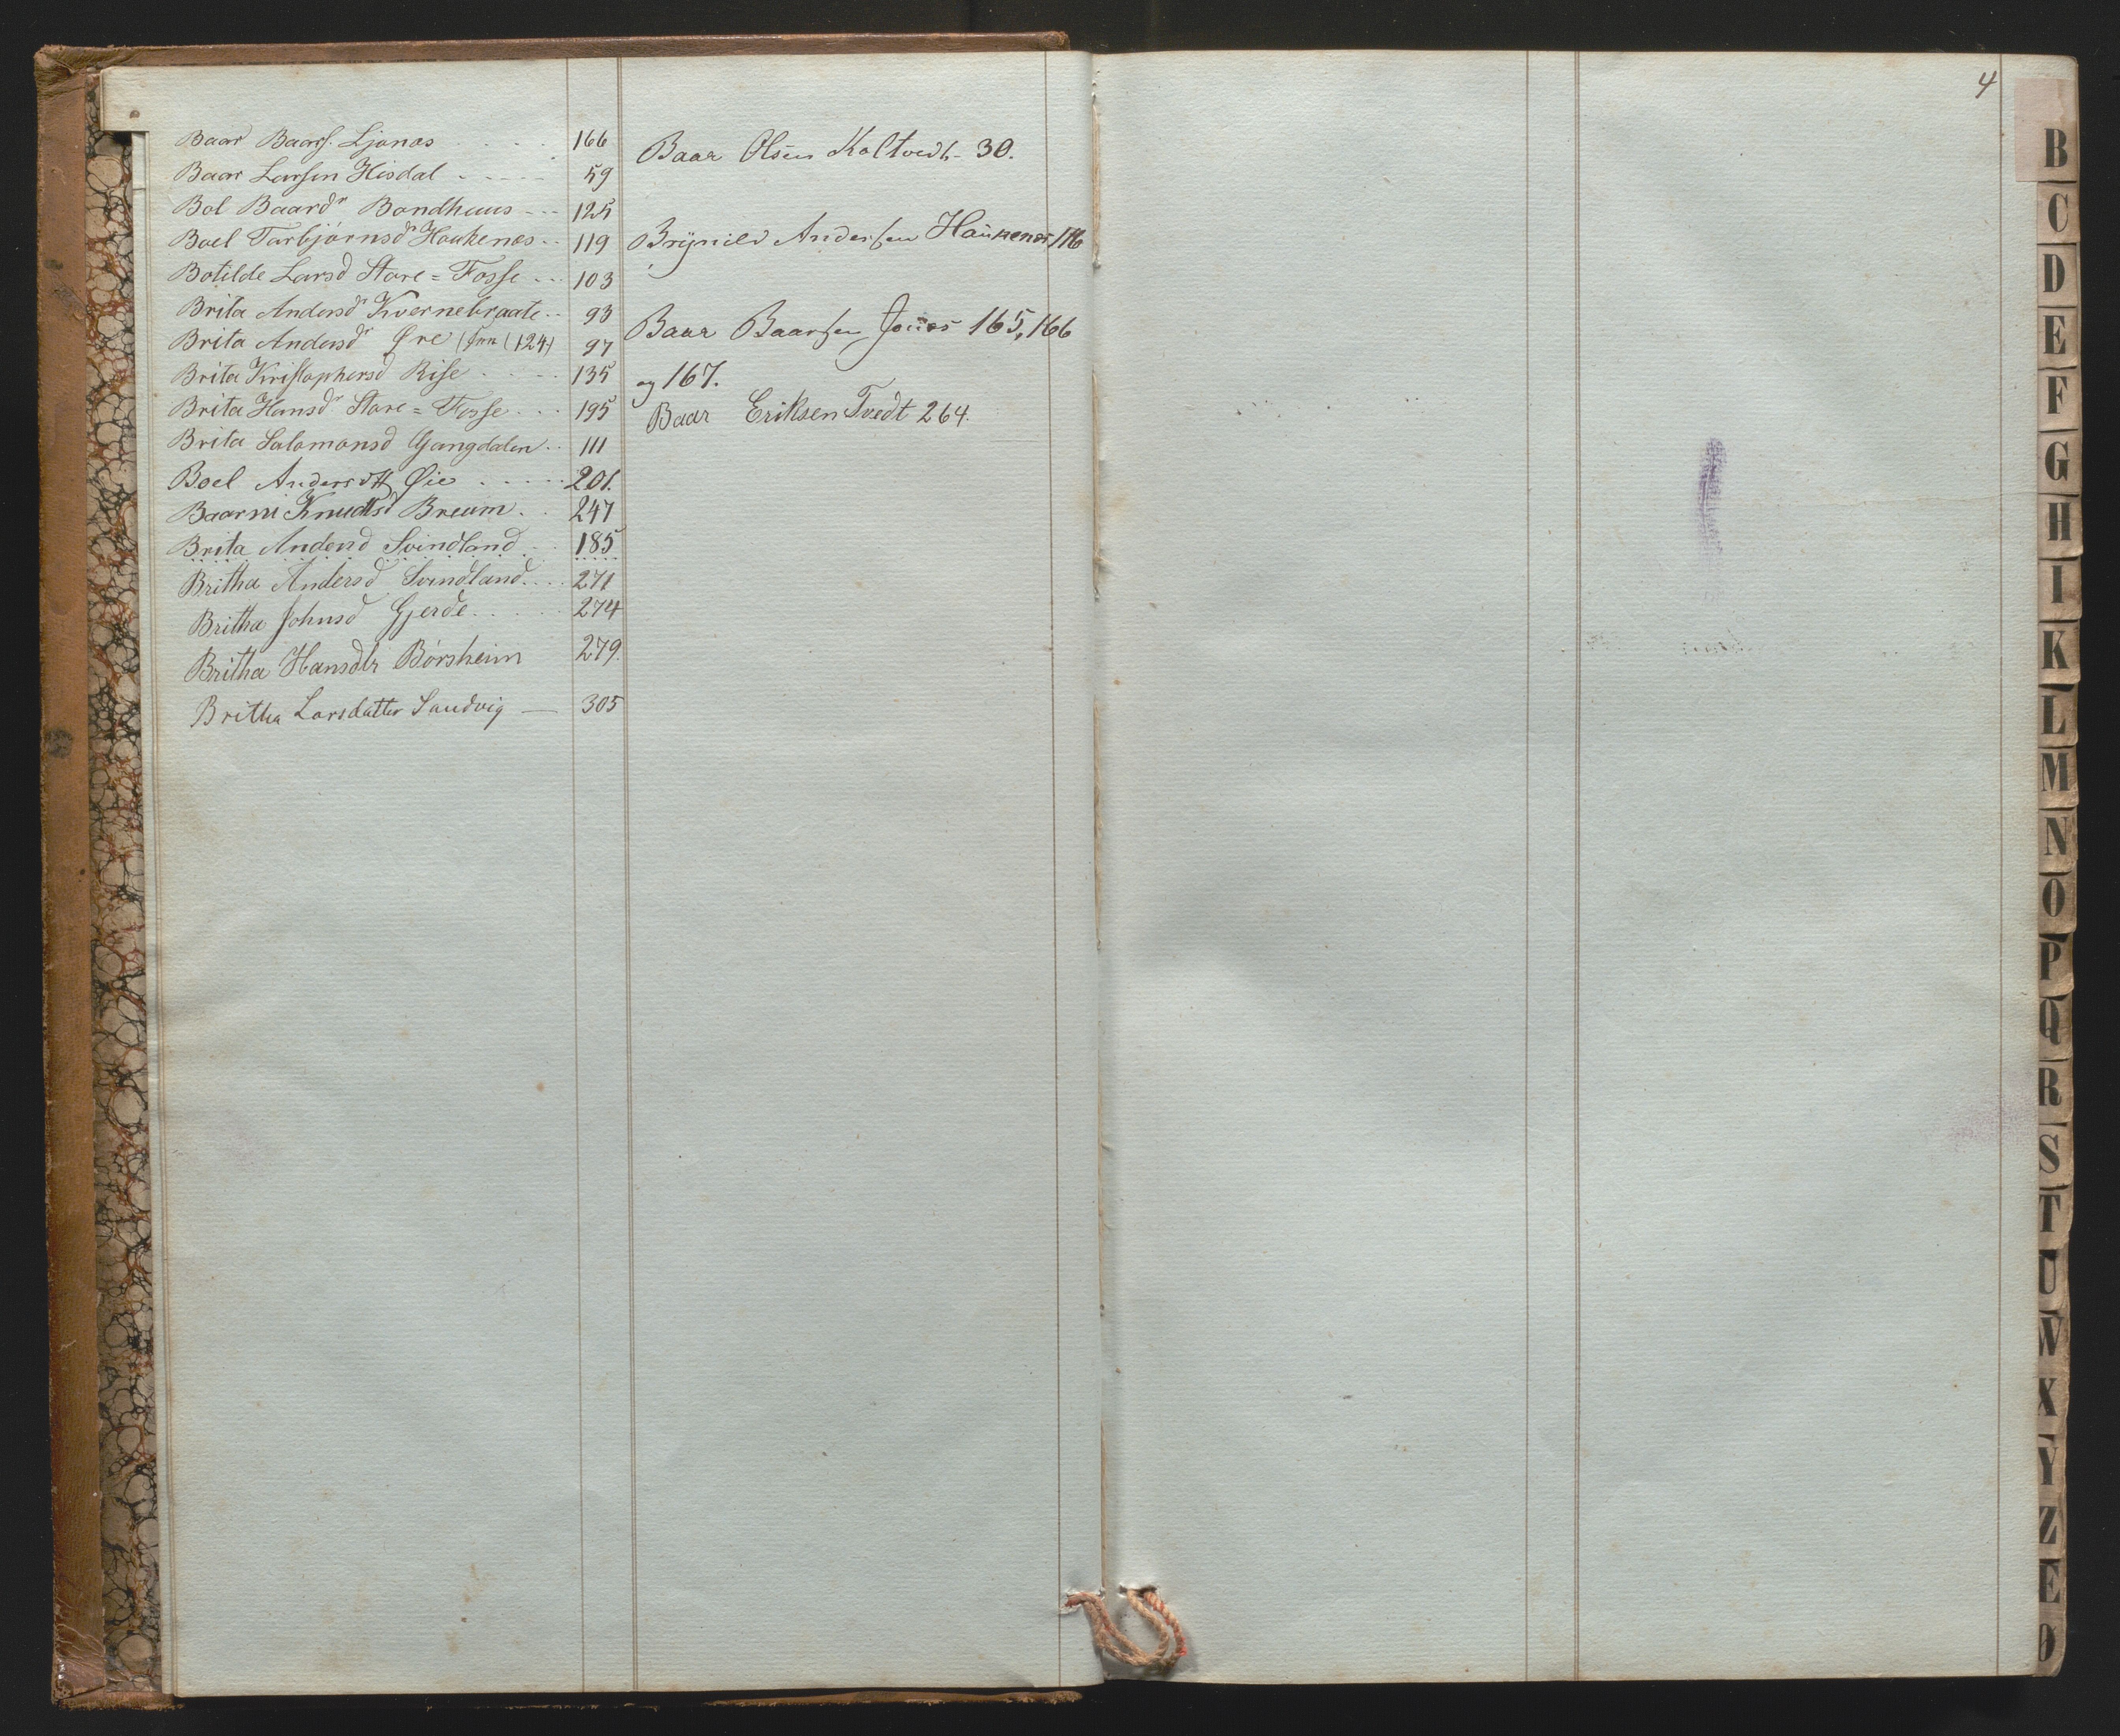 Baar Baars. Ljonæs . . . . 166
Baar Larsen Hisdal - - - - - 59
Bol Baardr Bondhuus - - - 125
Boel Torbjørnsdr Haukenæs - - 119
Botilde Larsd Store = Fosse - - - 103
Brita Andersdr Kvernebraate - - 93
Brita Andersdr Øre (124) 97
Brita Kristophersd Rise - - - - 135
Brita Hansdr Store = Fosse - - - 195
Brita Salomonsd Gangdalen - - 111
Boel Andersdtt Øie - - - - - 201.
Baarni Knudtsd Breum . . 247
Brita Andersd Svindland - - 185
Britha Andersd Svindland. . . . 271
Britha Johnsd Gjerde . . . . 274
Britha Hansdtr Børsheim 279.
Britha Larsdatter Sandvig — 305
Baar Olsen Koltvedt - 30.
Brynild Andersen Haukenæs 116
Baar Baarsen Jonæs 165, 166
og 167.
Baar Eriksen Tvedt 264.
4
B
C
D
E
F
G
H
I
K
L
M
N
O
P
Q
R
S
T
U
W
X
Y
Z
E
Ø